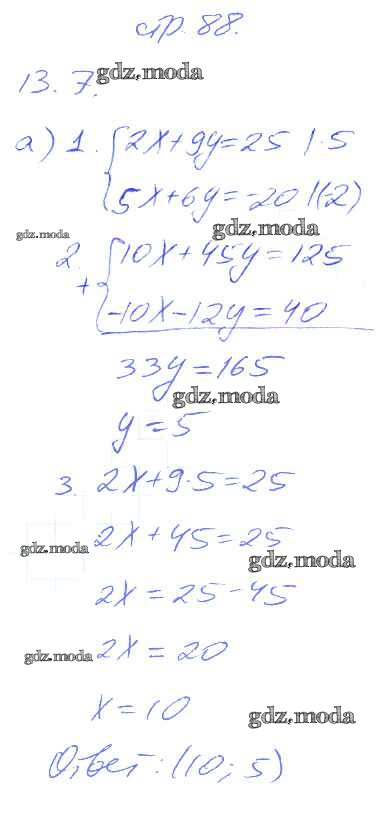 стр. 88.
13.7. gdz.moda
а) 1. { 2x+9y=25 |·5
5x+6y=-20 |(-2)
gdz.moda gdz.moda
2. + { 10x+45y=125
-10x-12y=40
33y=165
gdz.moda
y=5
3. 2x+9·5=25
gdz.moda 2x+45=25
gdz.moda
2x=25-45
gdz.moda 2x=20
x=10
gdz.moda
Ответ: (10; 5)